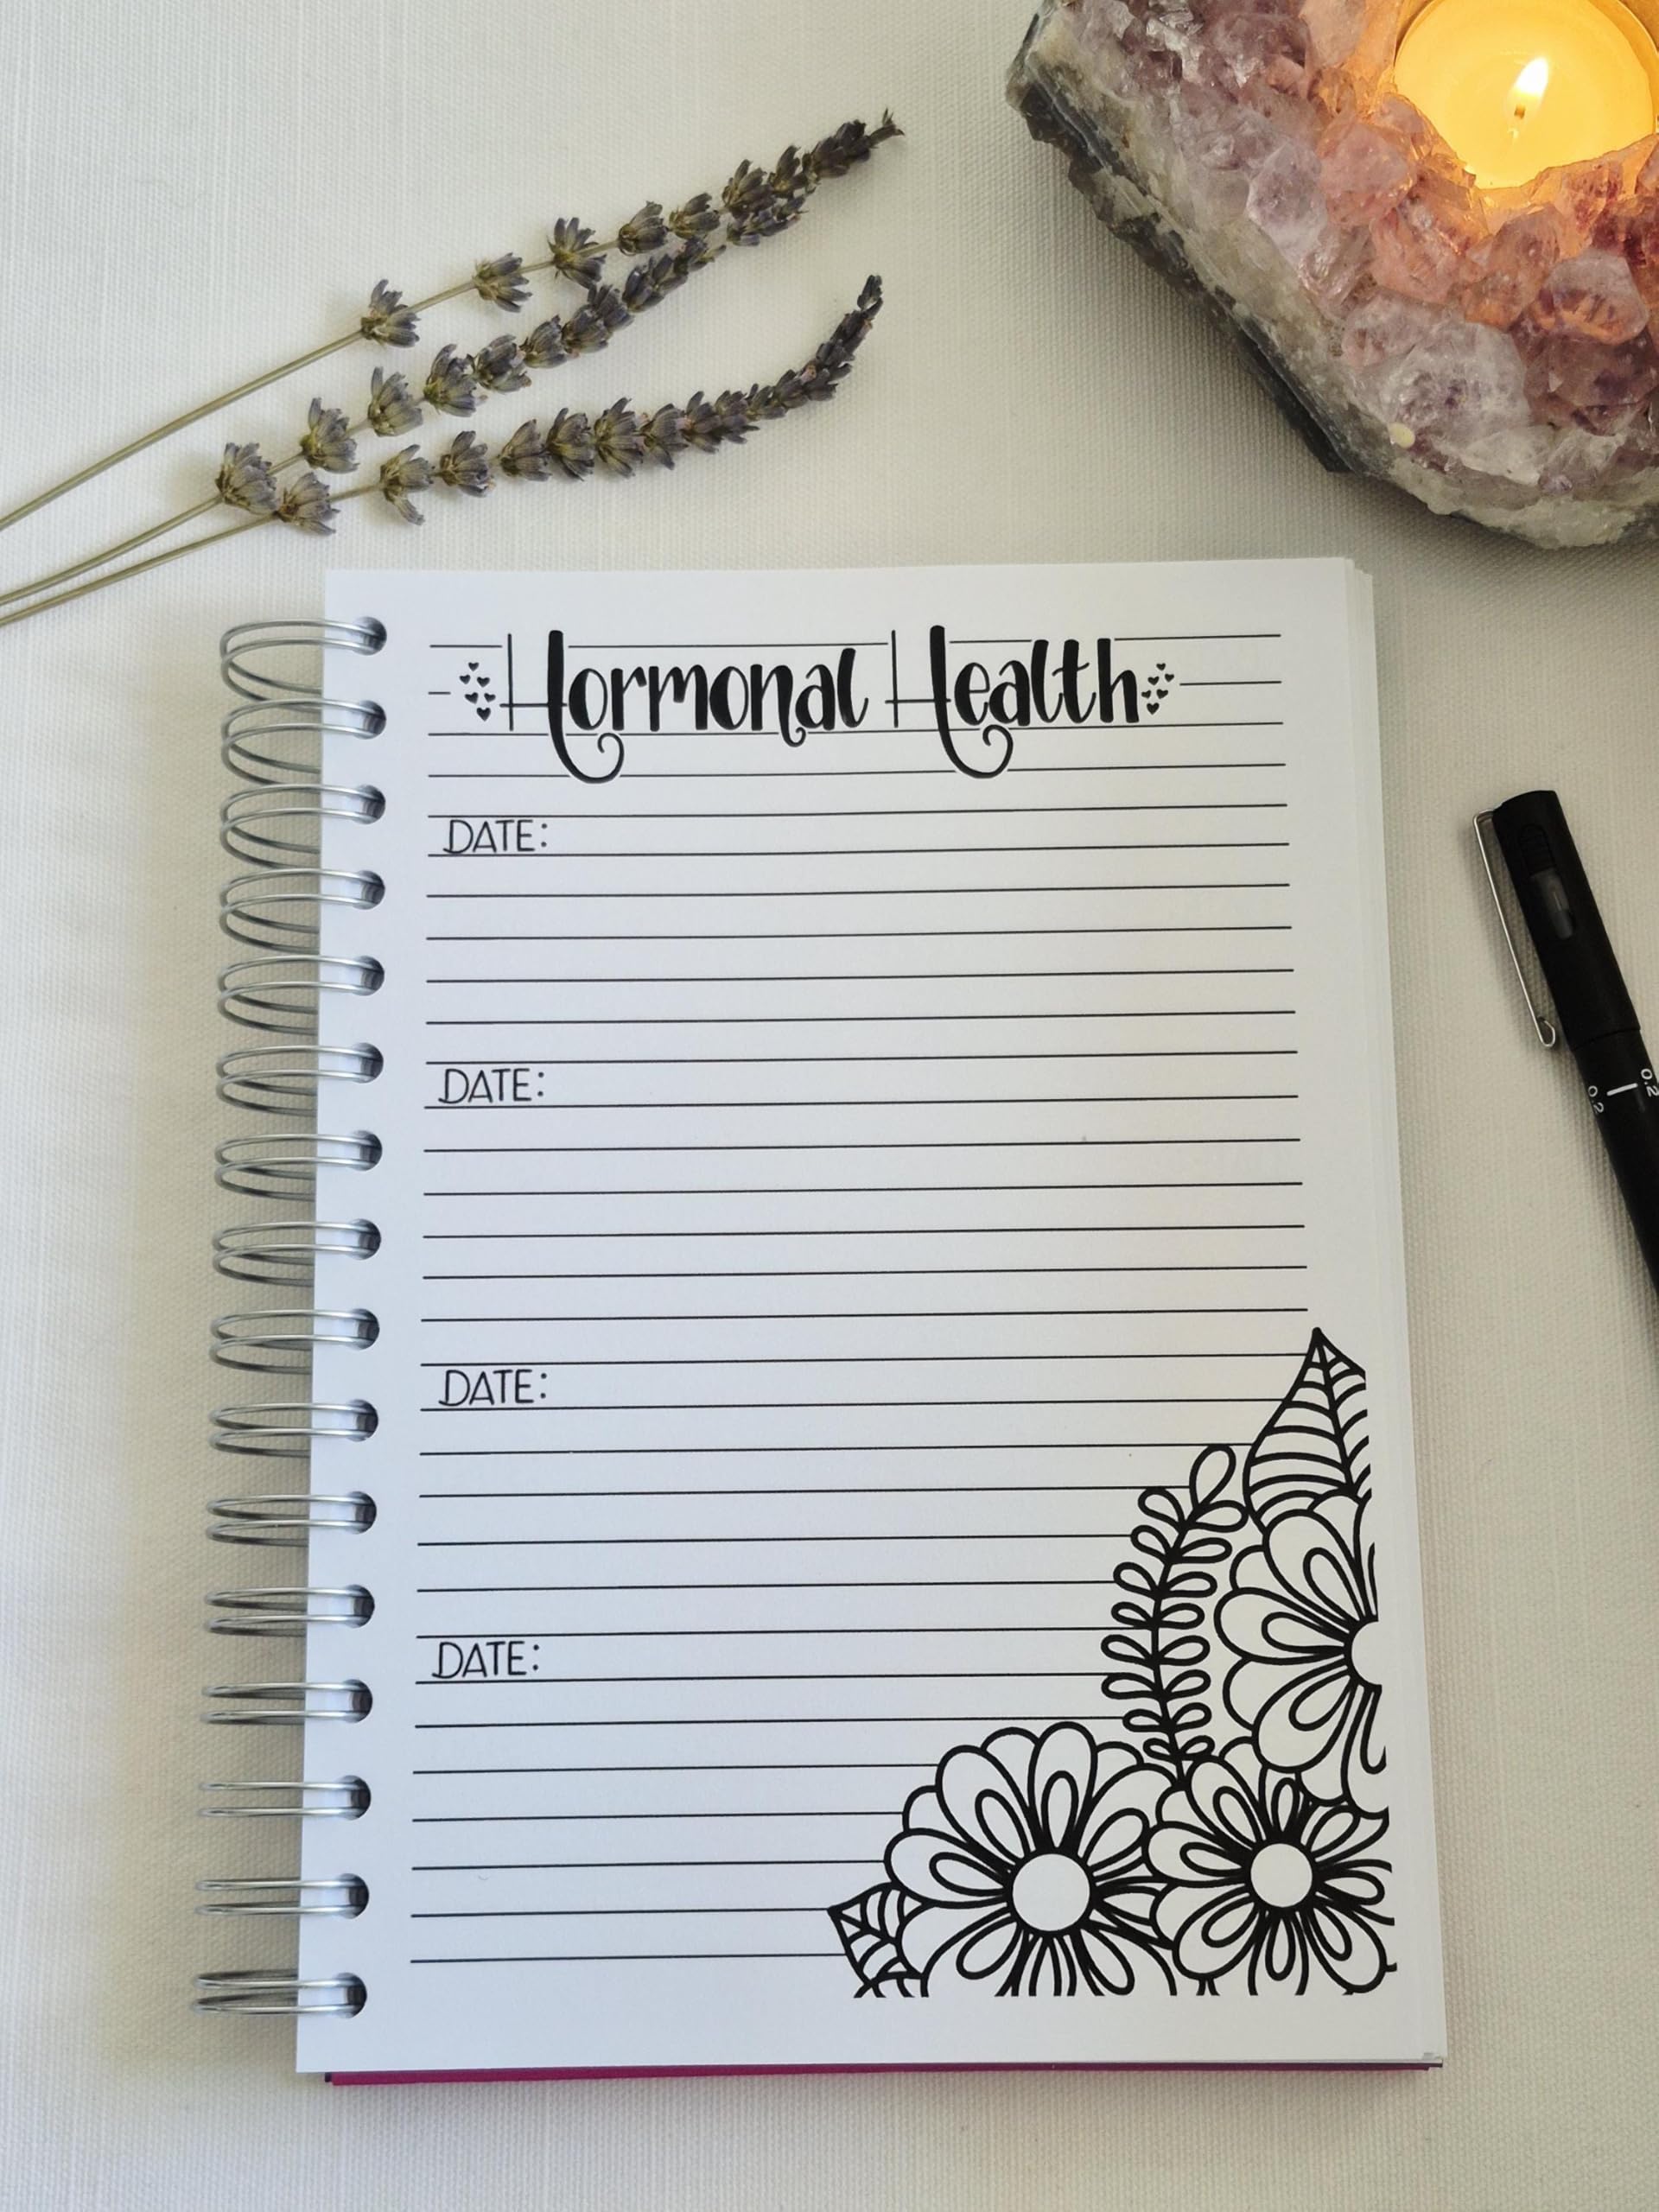 Hormonal Health
DATE:
DATE:
0.2
0.2
DATE:
DATE: